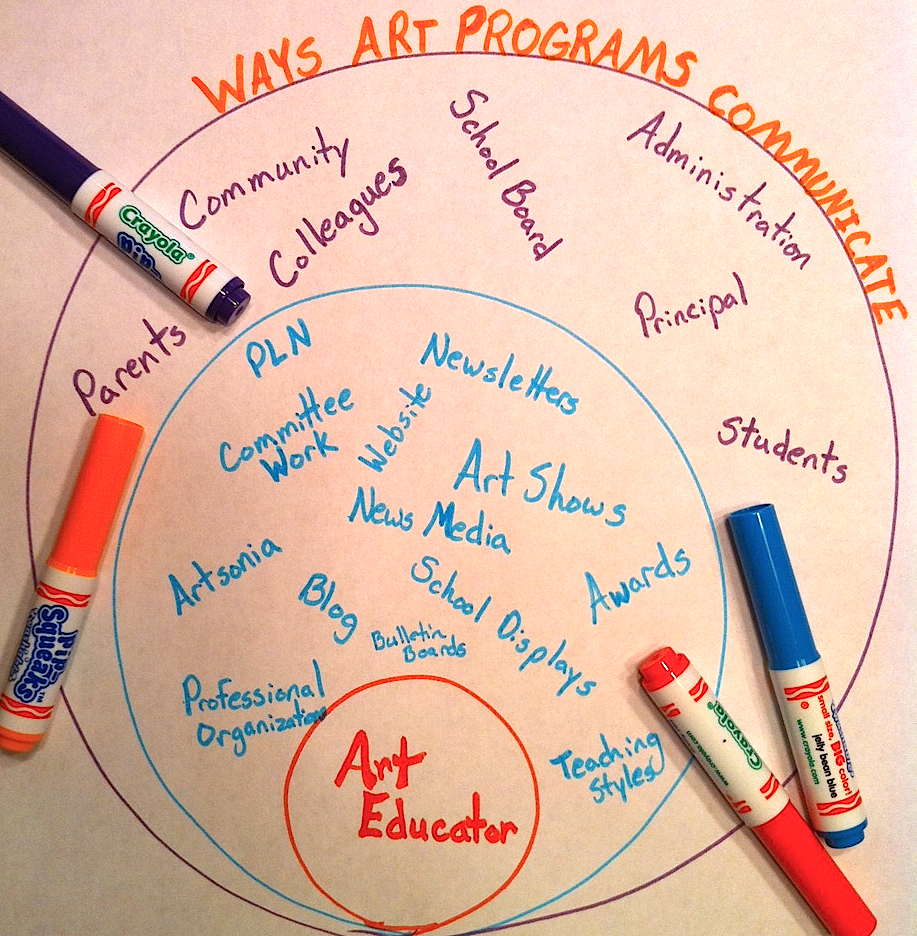 WAYS ART PROGRAMS COMMUNICATE
School Board
Administration
Community
Colleagues
Principal
Parents
Students
PLN
Newsletters
Committee
Work
Website
Art Shows
News Media
Artsonia
Blog
School Displays
Awards
Bulletin
Boards
Professional
Organizations
Teaching
Styles
Art
Educator
Crayola
Pip
Squeaks
Crayola
www.crayola.com
small size, BIG color!
www.crayola.com
jelly bean blue